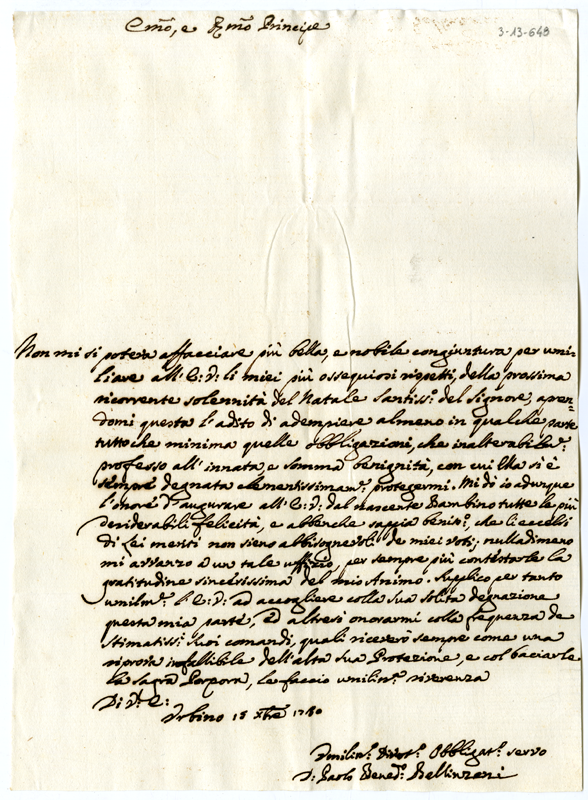 Emõ, e Rmõ Principe
3-13-648
Non mi si poteva affacciare più bella, e nobile congiuntura per umi=
liare all'E: V: li miei più ossequiosi rispetti, della prossima
ricorrente solennità del Natale Santiss: del Signore, apren=
domi questa l'adito di adempiere almeno in qualche parte
tutto che minima quelle obbligazioni, che inalterabile
professo all'innata, e somma benignità, con cui Ella si è
sempre degnata clementissimam: protegermi. Mi dò io adunque
l'onore d'augurare all'E: V: dal nascente Bambino tutte le più
desiderabili felicità, e abbenche sappia beniss: che li eccelsi
di Lei meriti non sieno abbisognevoli de miei voti, nulladimeno
mi avanzo a un tale uffizio, per sempre più contestarle la
gratitudine sincerissima del mio Animo. Supplico per tanto
umilm: l'E: V: ad accogliere colla sua solita degnazione
questa mia parte, ed altresì onorarmi colla frequenza de
stimatiss: suoi comandi, quali riceverò sempre come una
riprova infallibile dell'alta sua Protezione, e col baciarle
la sagra Porpora, le faccio umilim: riverenza
Di V: E:
Urbino 15 Xbre 1730
Umilim: Divot: Obbligat: servo
D: Paolo Bened: Bellinzani